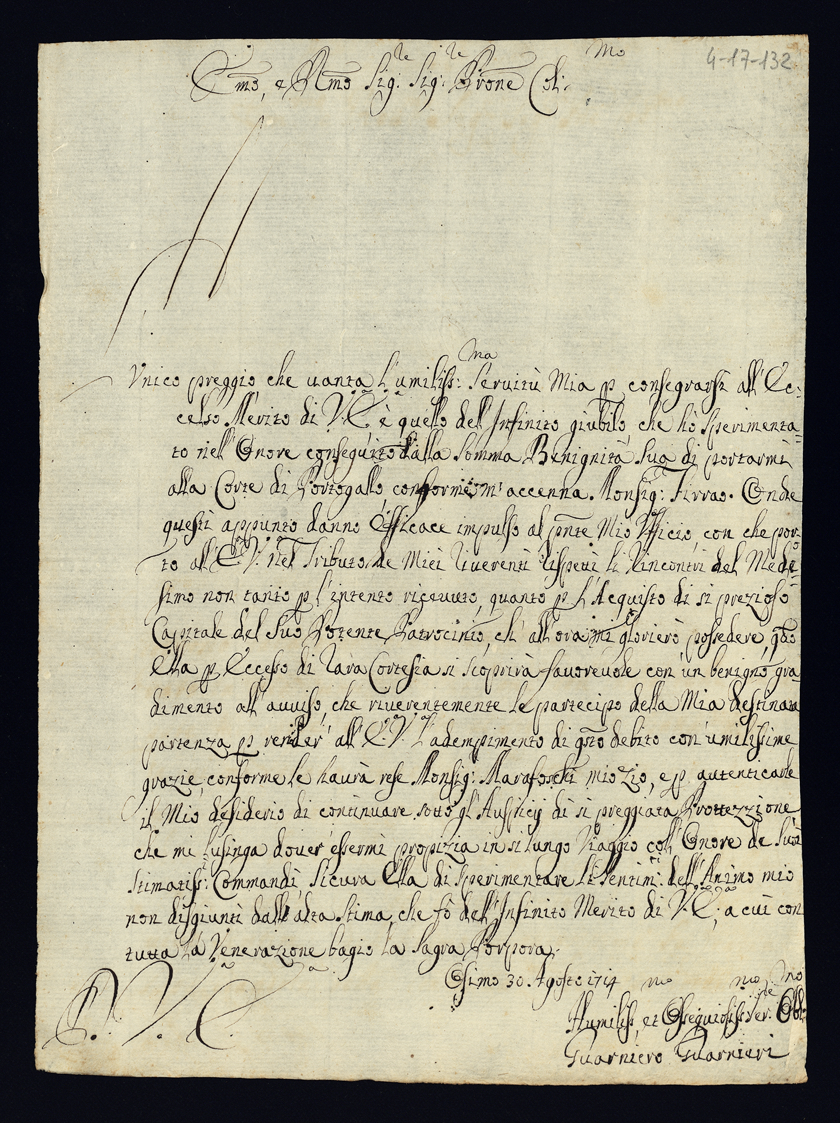 4-17-132
Emo, e Rmo Sig:re Sig:re Prone Col:mo
Vnico preggio che uanta l'umiliss:ma Seruitù Mia p consegrarsi all'Ec=
celso Merito di V:E:a è quello dell'Infinito giubilo, che hò sperimenta=
to nell'Onore conseguito dalla somma Benignità Sua di portarmi
alla Corte di Portogallo, conforme m'accenna Monsig:r Firrao. Onde
questi appunto danno Efficace impulso al pnte Mio Vfficio, con che por
to all'E:V: nel Tributo de Miei riuerenti rispetti li rincontri del Mede=
simo non tanto p l'intento riceuuto, quanto p l'Acquisto di sì prezioso
Capitale del Suo Potente Patrocinio, ch'all'ora mi glorierò possedere, qdo
Ella p Eccesso di rara Cortesia si scoprirà fauoreuole con'un benigno gra
dimento all'auuiso, che riuerentemente le partecipo della Mia destinata
partenza p render'all'E:V: l'adempimento di qsto debito con'umilissime
grazie, conforme le haurà rese Monsig:r Marafoschi mio Zio, e p autenticarle
il Mio desiderio di continuare sotto gl'Auspicij di sì preggiata Prottezzione
che mi lusinga douer'essermi propizia in sì lungo Viaggio coll'Onore de Suoi
Stimatiss:i Commandi, Sicura Ella di sperimentare li sentim:ti dell'Animo mio
non disgiunti dall'alta Stima, che fò dell'Infinito Merito di V:E:a, a cui con
tutta la Venerazione bagio la Sagra Porpora.
Osimo 30 Agosto 1714
D. V:a E:a
Humiliss:mo, et Ossequiosiss:mo Ser:re Obb:mo
Guarniero Guarnieri